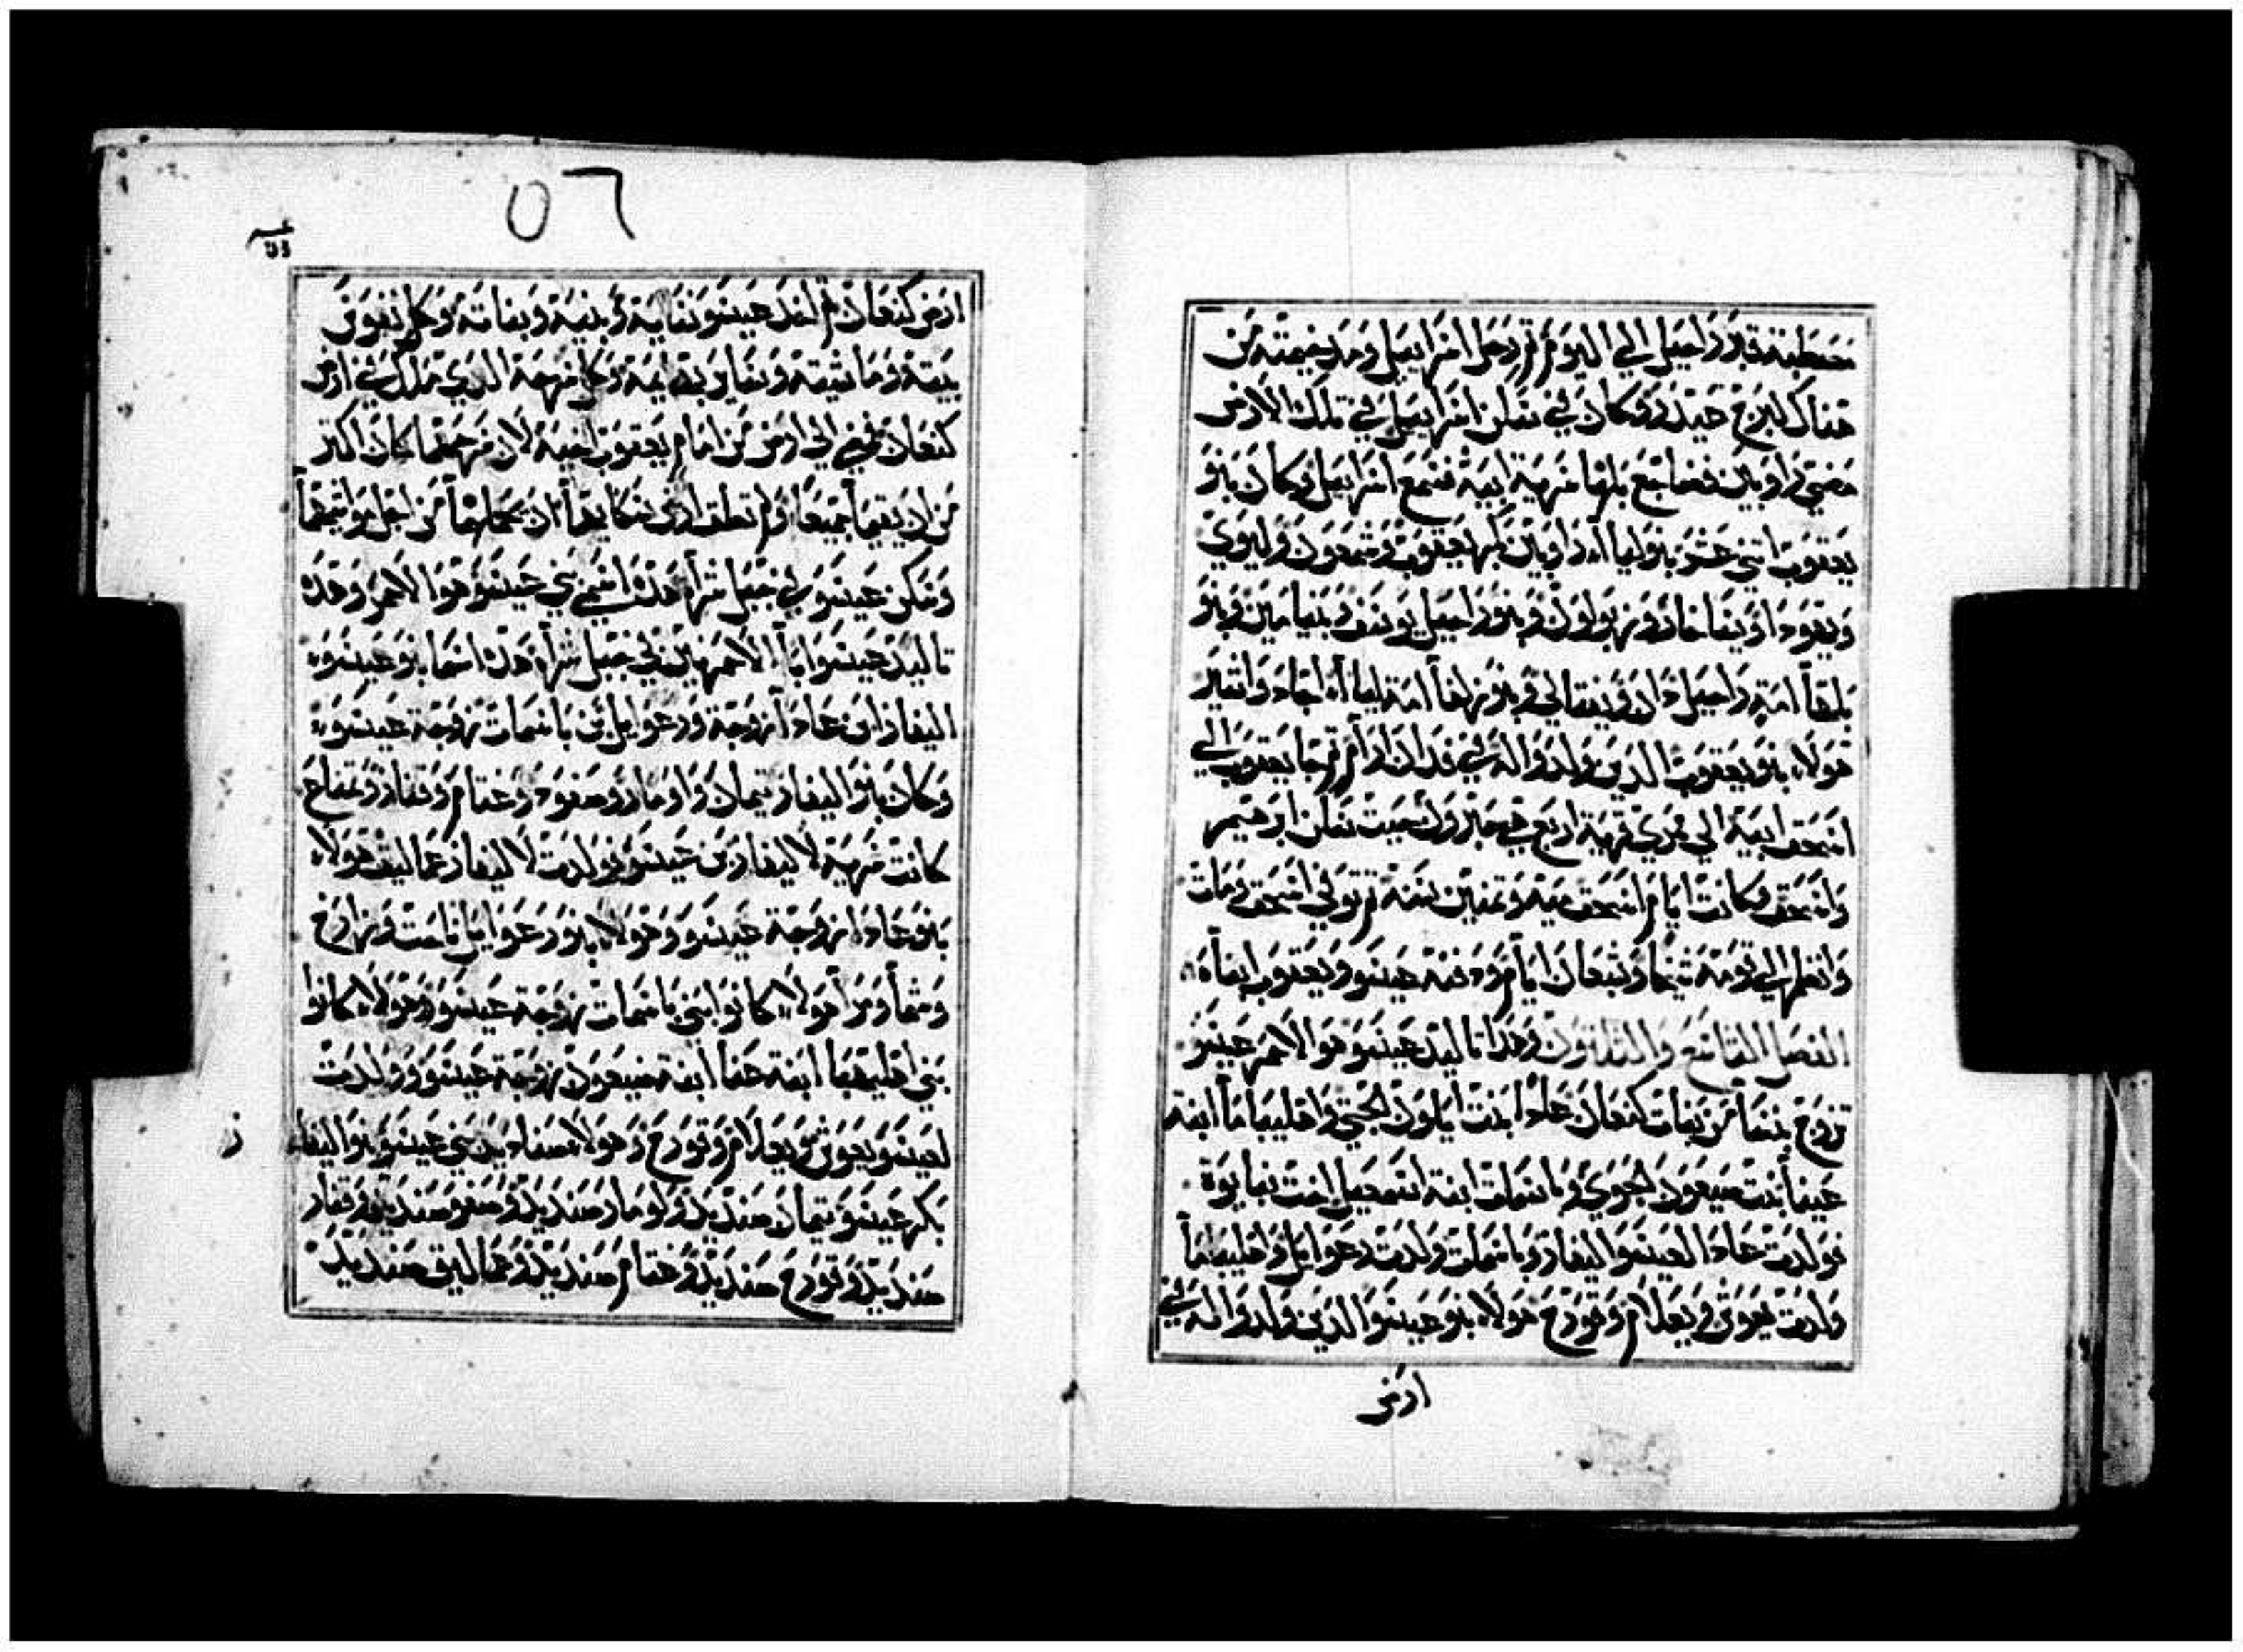 مصطبة قبر راحيل الي اليوم ثم رحل اسرابيل ومد خيمته من
هناك لبرج حيدر وكان في سكن اسرابيل في تلك الارض
مضي راوبين فضاجع بلها سرية ابيه فسمع اسرابيل وكان بنو
يعقوب اثني عشر بنو ليا راوبين بكر يعقوب وشمعون وليوي
ويهودا ويساخار وزبولون وبنو راحيل يوسف وبنيامين وبنو
بلها امة راحيل دان ونفتالي وبنو زلفا امة ليا جاد واشير
هولاء بنو يعقوب الدين ولدوا له في فدان ارام ثم جا يعقوب الي
اسحق ابيه الي ممري قرية اربع حيت سكن ابرهيم
واسحق وكانت ايام اسحق ميه وتمنين سنه ثم توفي اسحق ومات
وانظم الي قومه شيخا وشبعان ايام ودفنه عيسو ويعقوب ابناه
الفصل السادس والتلاتون وهدا تاليد عيسو هو الاحمر عيسو
تزوج بنسا من بنات كنعان عادا بنت ايلون الحيتي واهليباما ابنة
عينا بنت صبعون الحوي وباسمات ابنة اسمعيل اخت نبايوة
فولدت عادا لعيسو اليفاز وباسمات ولدت رعوايل واهليباما
ولدت يعوش ويعلام وقورح هولاء بنو عيسو الدين ولدوا له في
ارض
٥٦
ارض كنعان ثم اخد عيسو نسايه وبنيه وبناته وكل نفوس
بيته وماشيته وساير بهايمه وكل سرحه الدي ملك في ارض
كنعان فمضي الي ارض من امام يعقوب اخيه لان سرحهما كان اكتر
من ان يقيما جميعا ولم تطق ارض سكناهما ان تحملهما من اجل مواشيهما
وسكن عيسو في جبل شراه هدا اسمي بني عيسو هو الاحمر وهده
تاليد عيسو ابا الاحمريين في جبل شراه هده اسما بنو عيسو
اليفاز ابن عادا زوجة ورعوايل بن باسمات زوجة عيسو
وكان بنو اليفاز تيمان واومار وصفو وغتام وقناز وتمناع
كانت سرية لاليفاز بن عيسو فولدت لاليفاز عماليق هولاء
بنو عادا زوجة عيسو وهولاء بنو رعوايل ناحت وزارخ
وشما ومزا هولاء كانوا بني باسمات زوجة عيسو وهولاء كانوا
بني اهليباما ابنة عنا ابنة صبعون زوجة عيسو وولدت
لعيسو يعوش ويعلام وقورح وهولاء صناديد بني عيسو بنو اليفاز
بكر عيسو تيمان صنديد واومار صنديد وصفو صنديد وقناز
صنديد وقورح صنديد وغتام صنديد وعماليق صنديد